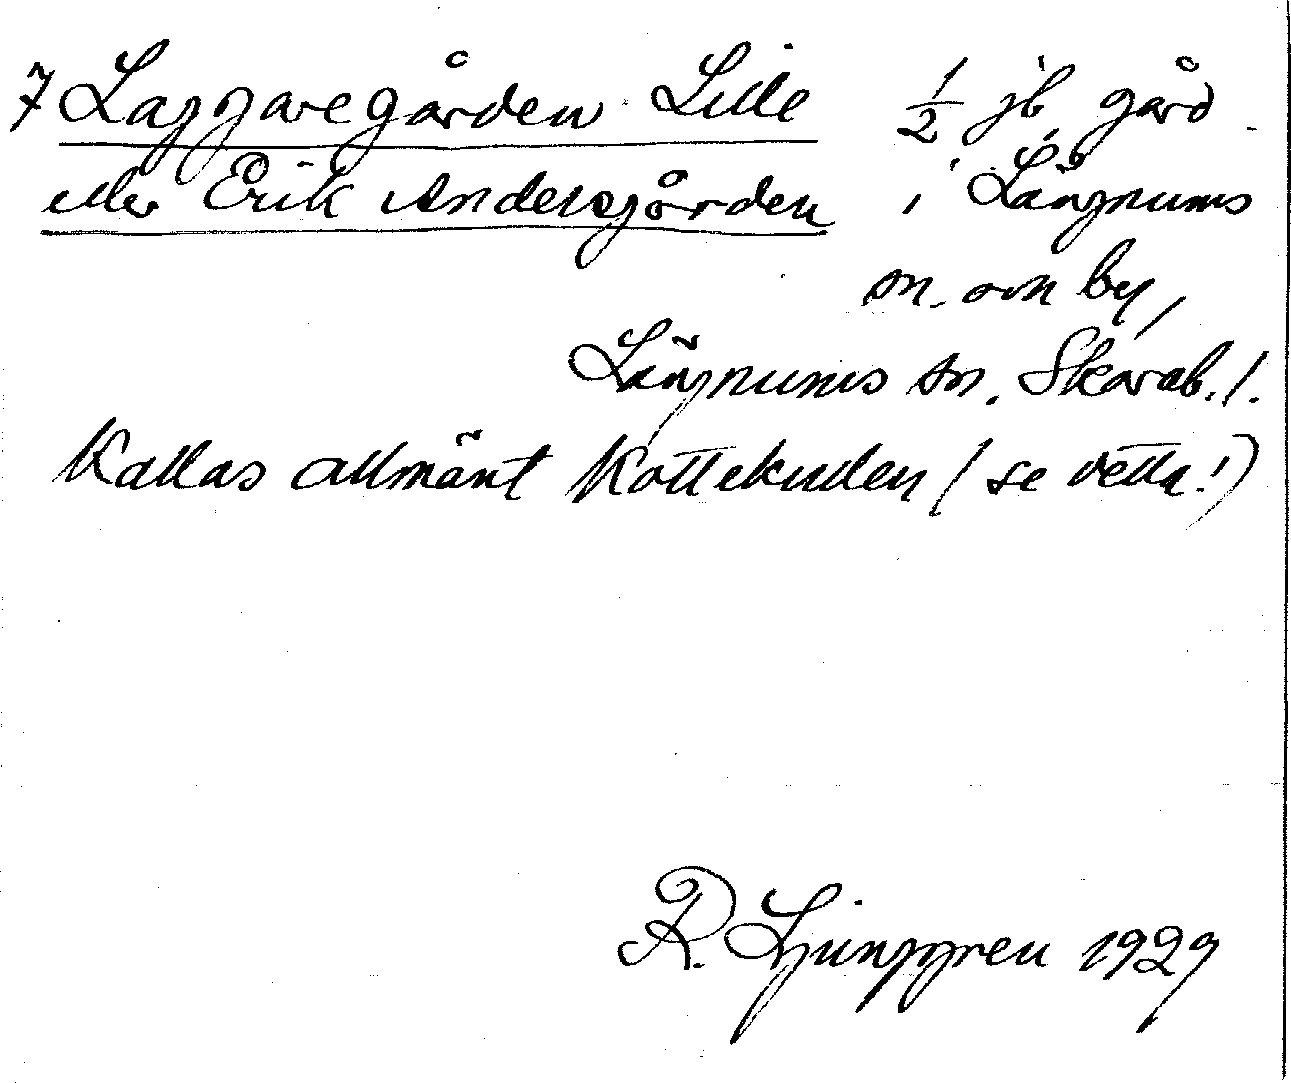 7 Laggaregården Lille ½ jb. gård
eller Erik Andersgården i Längnums
sn. och by,
Längnums sn. Skarab. l.
Kallas allmänt Kottekullen (se detta!)
R. Ljunggren 1929